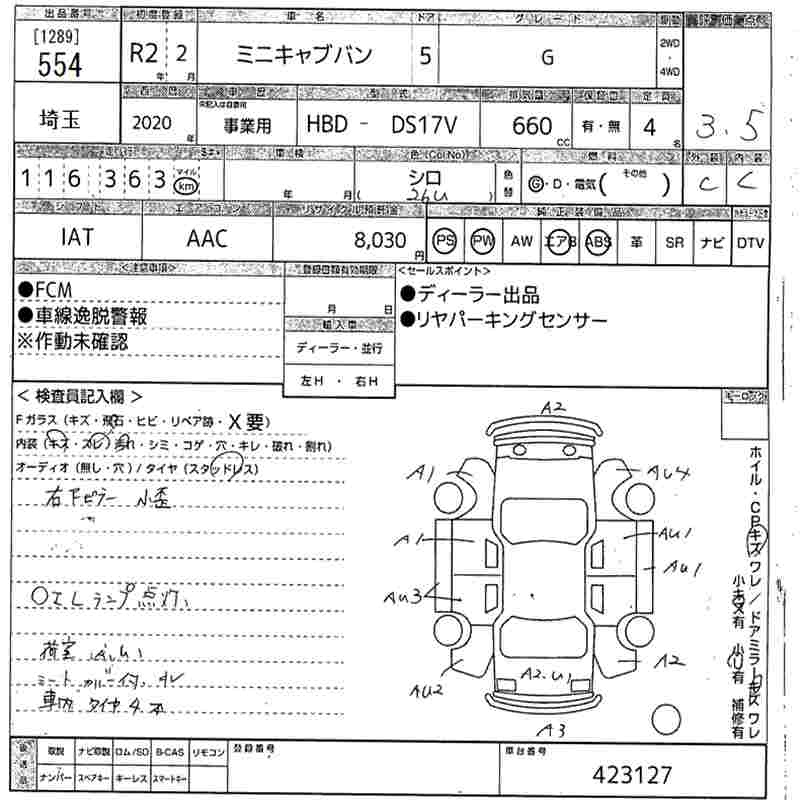 出品番号 初度登録 車名 ドア グレード 駆動 評価点
[1289]
554 R2年 2月 ミニキャブバン 5 G 2WD・4WD
西暦 車歴 型式 排気量 保証書 定員
埼玉 2020年 未記入は自家用 事業用 HBD - DS17V 660cc 有・無 4名 3.5
走行 車検 色(Col No) 燃料 外装 内装
116,363 マイル km 年 月 シロ (26U) 色替 G・D・電気( その他 ) C C
シフト エアコン リサイクル預託金 純正装備品
IAT AAC 8,030円 PS PW AW エアB ABS 革 SR ナビ DTV
<注意事項> 登録書類有効期限 <セールスポイント>
●FCM 月 日 ●ディーラー出品
●車線逸脱警報 輸入車 ●リヤパーキングセンサー
※作動未確認 ディーラー・並行
左H ・ 右H
<検査員記入欄> キーロック
Fガラス (キズ・飛石・ヒビ・リペア跡・X要)
内装 (キズ・スレ・汚れ・シミ・コゲ・穴・キレ・破れ・割れ)
オーディオ (無し・穴) / タイヤ (スタッドレス)
右下ピラー 小歪
OILランプ点灯
荷室
車内 タイヤ4本
A2
A1 AU4
A1 AU1
AU1
AU3
AU2 A2.U1 A2
A3
ホイル・CPキズワレ/ドアミラーキズワレ
小有 小U有 補修有
後送品 取説 ナビ取説 ロム/SD B-CAS リモコン 登録番号 車台番号
ナンバー スペアキー キーレス スマートキー 423127